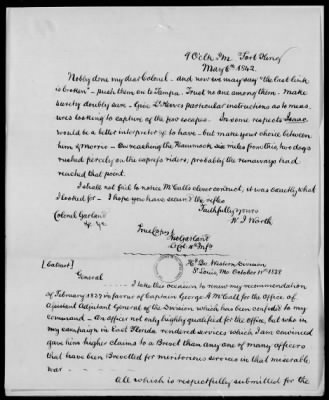 9 Oclk P.M. Fort King
May 6th 1842.
Nobly done my dear Colonel - and now we may say "the last link
is broken" - push them on to Tampa. Trust no one among them. make
surety doubly sure - Give Lt. particular instructions as to meas
ures looking to capture of the four escapes. In some respects Isaac
would be a better interpreter to have - but make your choice between
him & Morris - On reaching the Hammock six miles from this, two dogs
rushed fiercely on the express riders, probably the runaways had
reached that point.
I shall not fail to notice McCall's clever conduct, it was exactly what
I looked for - I hope you have secured the rifles
Faithfully yours
W. J. Worth
Colonel Garland
&c. &c.
True Copy
Jno. Garland
Lt Col. 4th Infy
[Extract]
Hd. Qr. Western Division
St Louis, Mo October 11th 1838
General
I take this occasion to renew my recommendation
of February 1837 in favor of Captain George A McCall for the Office of
assistant Adjutant General of the Division which has been confided to my
command - An officer not only highly qualified for the office, but who in
my campaign in East Florida rendered services which I am convinced
gave him higher claims to a Brevet than any one of many officers
that have been Brevetted for meritorious services in that miserable
war -
All which is respectfully submitted for the